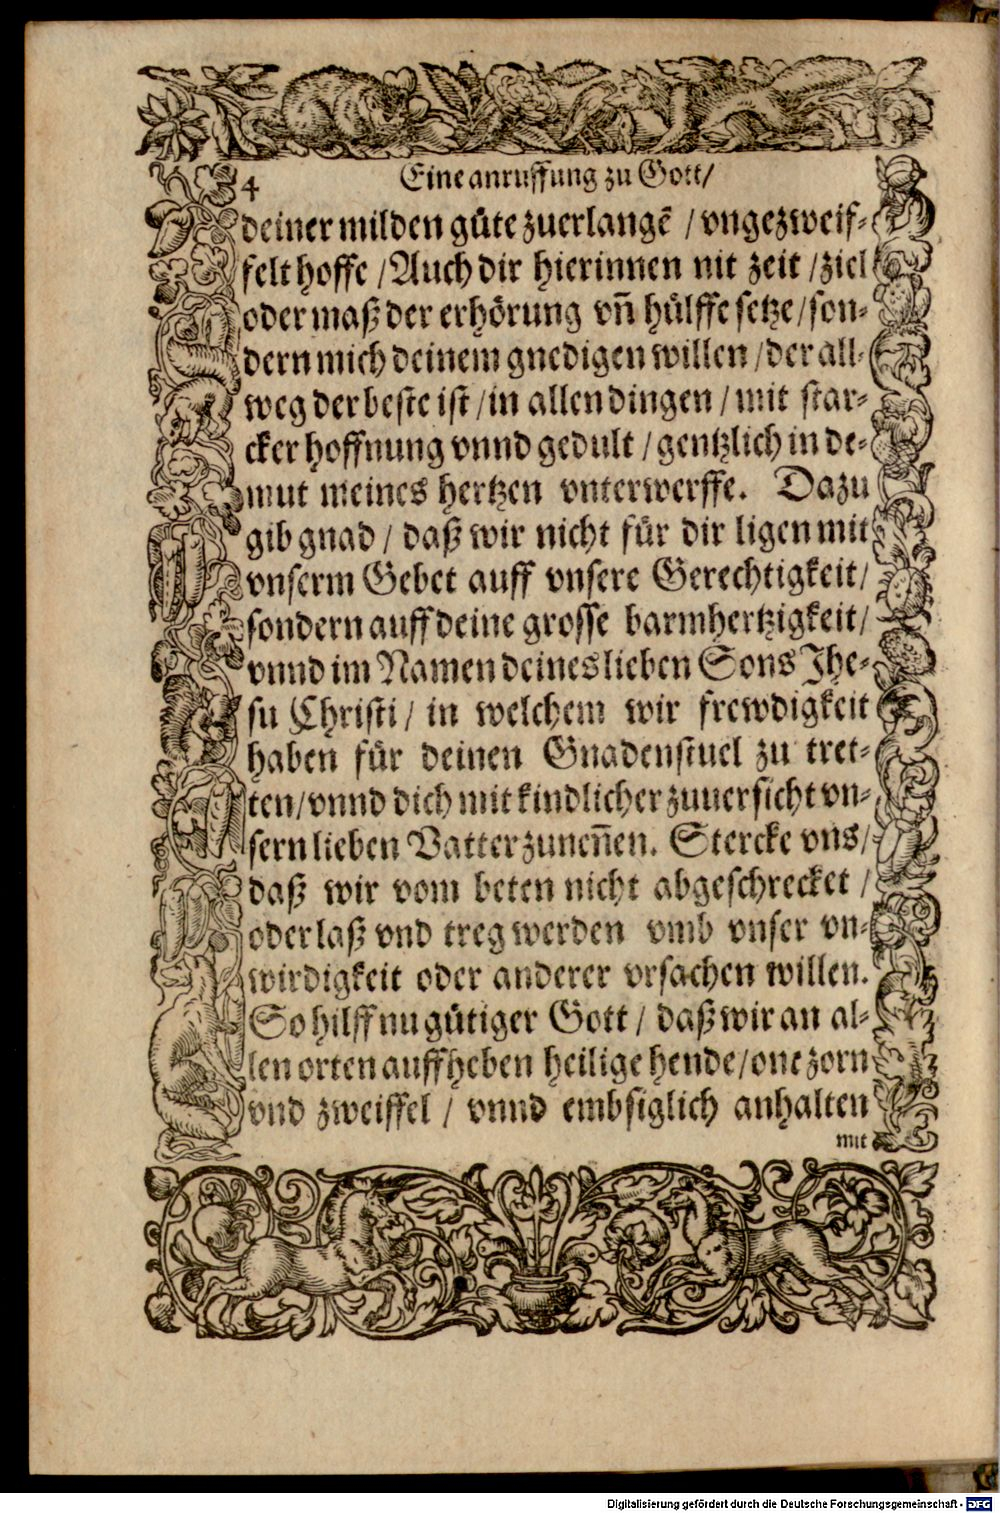 4 Eine anruffung zu Gott/
deiner milden güte zuerlangẽ / vngezweif-
felt hoffe / Auch dir hierinnen nit zeit / ziel
oder maß der erhörung vñ hülffe setze / son-
dern mich deinem gnedigen willen / der all-
weg der beste ist / in allen dingen / mit star-
cker hoffnung vnnd gedult / gentzlich in de-
mut meines hertzen vnterwerffe. Dazu
gib gnad / daß wir nicht für dir ligen mit
vnserm Gebet auff vnsere Gerechtigkeit /
sondern auff deine grosse barmhertzigkeit /
vnnd im Namen deines lieben Sons Jhe-
su Christi / in welchem wir frewdigkeit
haben für deinen Gnadenstuel zu tret-
ten / vnnd dich mit kindlicher zuuersicht vn-
sern lieben Vatter zuneñen. Stercke vns /
daß wir vom beten nicht abgeschrecket /
oder laß vnd treg werden vmb vnser vn-
wirdigkeit oder anderer vrsachen willen.
So hilff nu gütiger Gott / daß wir an al-
len orten auffheben heilige hende / one zorn
vnd zweiffel / vnnd embsiglich anhalten
mit
Digitalisierung gefördert durch die Deutsche Forschungsgemeinschaft - DFG